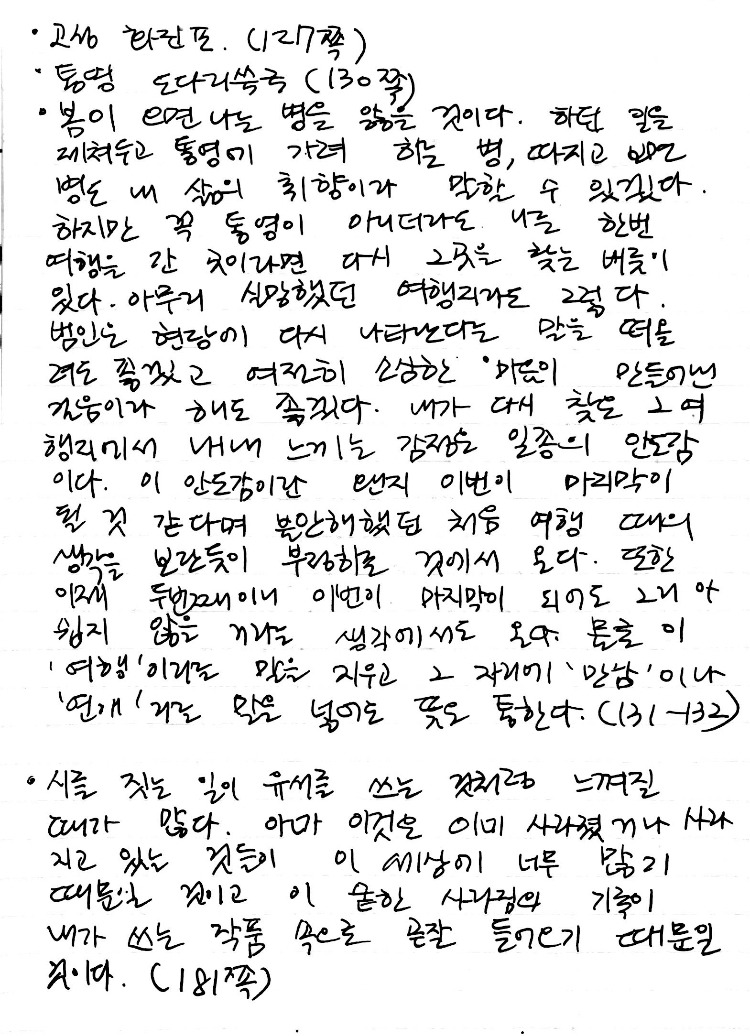 · 고성 화진포. (127쪽)
· 통영 도다리쑥국 (130쪽)
· 봄이 오면 나는 병을 앓을 것이다. 하던 일을
제쳐두고 통영에 가려 하는 병, 따지고 보면
병도 내 삶의 취향이라 말할 수 있겠다.
하지만 꼭 통영이 아니더라도 나는 한번
여행을 간 곳이라면 다시 그곳을 찾는 버릇이
있다. 아무리 실망했던 여행지라도 그렇다.
범인은 현장에 다시 나타난다는 말을 떠올
려도 좋겠고 여전히 소상한 마음이 만들어낸
걸음이라 해도 좋겠다. 내가 다시 찾은 그 여
행지에서 내내 느끼는 감정은 일종의 안도감
이다. 이 안도감이란 왠지 이번이 마지막이
될 것 같다며 불안해했던 처음 여행 때의
생각을 보란듯이 부정하는 것에서 온다. 또한
이제 두번째이니 이번이 마지막이 되어도 그리 아
쉽지 않을 거라는 생각에서도 온다. 물론 이
'여행'이라는 말을 지우고 그 자리에 '만남'이나
'연애'라는 말을 넣어도 뜻은 통한다. (131~132)
· 시를 짓는 일이 유서를 쓰는 것처럼 느껴질
때가 많다. 아마 이것은 이미 사라졌거나 사라
지고 있는 것들이 이 세상에 너무 많기
때문일 것이고 이 숱한 사라짐의 기록이
내가 쓰는 작품 속으로 곧잘 들어오기 때문일
것이다. (181쪽)